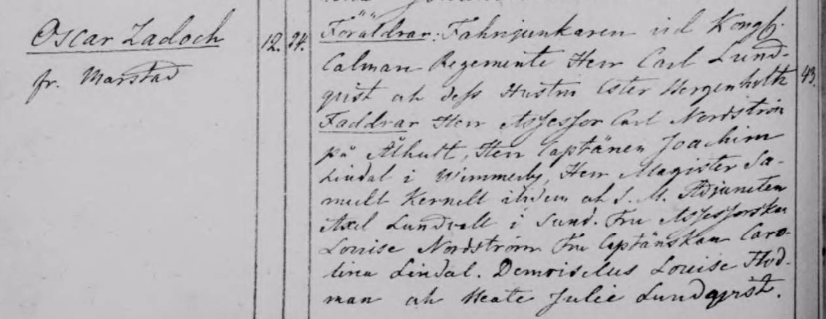 Oscar Zadoch
fr. Marstad
12. 24.
Föräldrar: Fahnjunkaren vid Kongl.
Calmar Regemente Herr Carl Lund-
quist och dess Hustru Ester Hergenholtz
43.
Faddrar Herr Assessor Carl Nordström
på Ålhult, Herr Captänen Joachim
Lindal i Wimmerby, Herr Magister Sa-
muel Kernell ibidem och S. M. Adjuncten
Axel Lundvall i Sund. Fru Assessorskan
Louise Nordström Fru Captänskan Caro-
lina Lindal. Demoiselles Louise Flod-
man och Beate Julie Lundqvist.